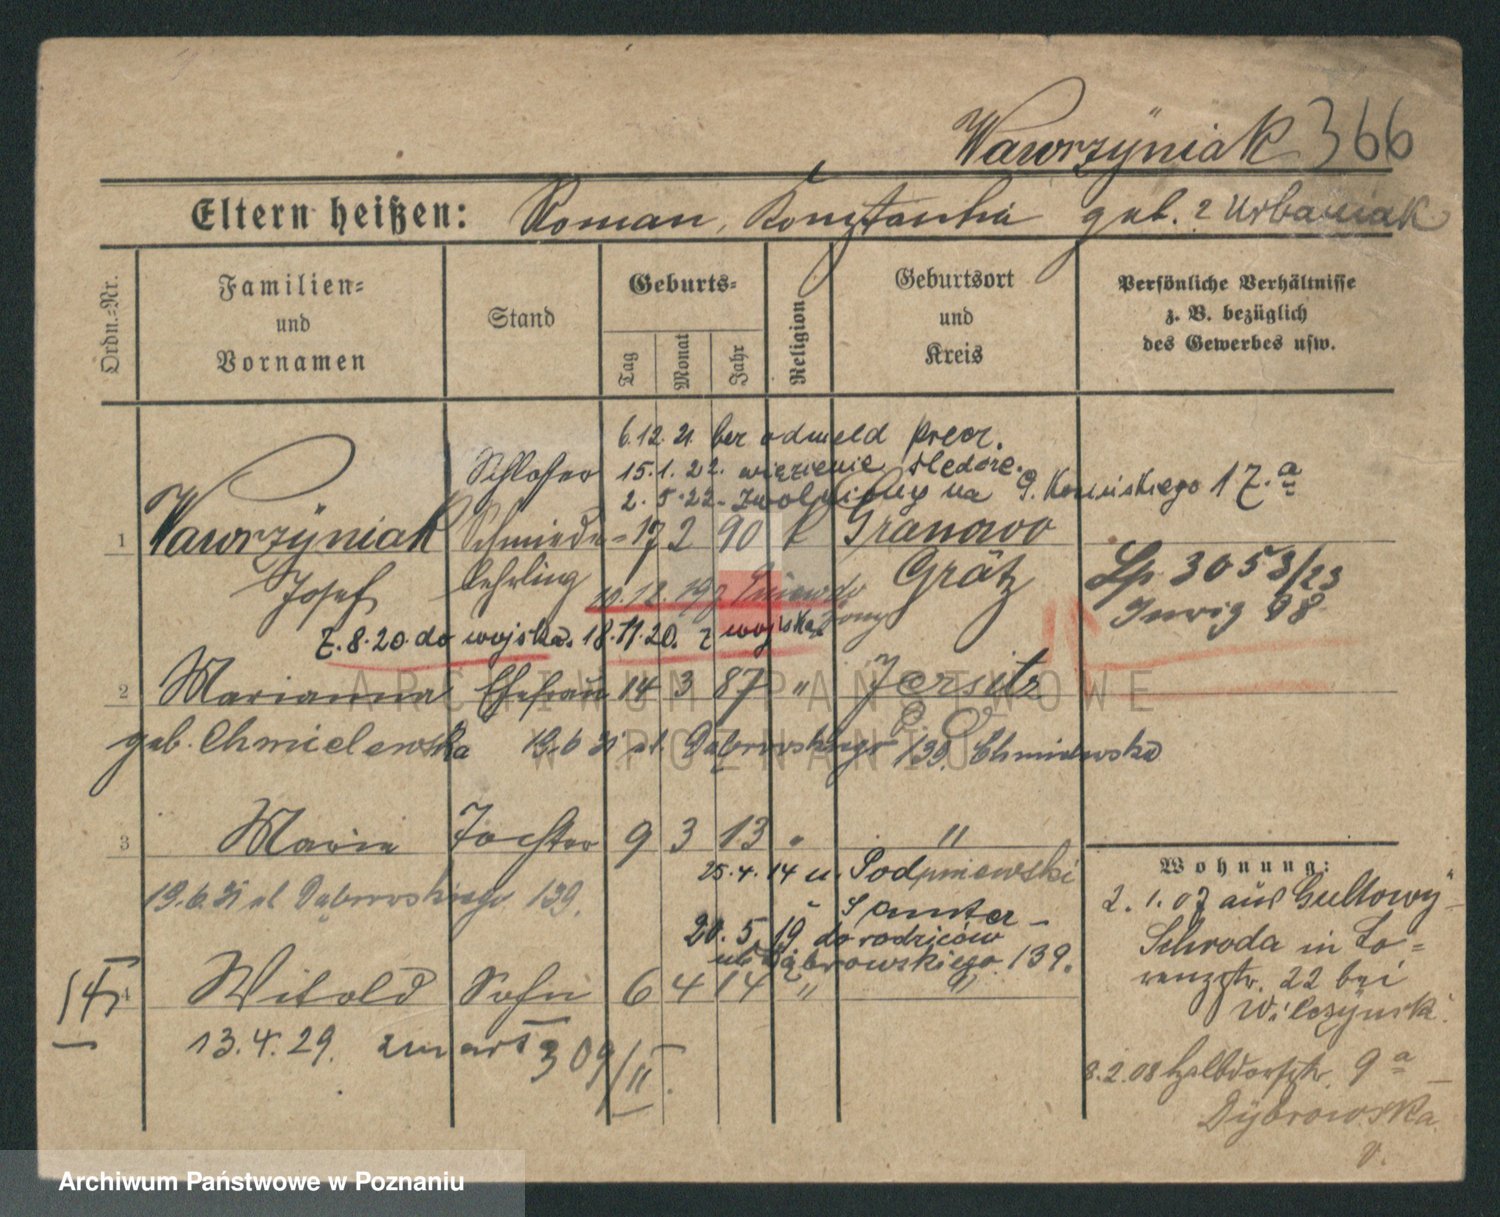 Wawrzÿniak 366
Eltern heißen: Roman, Konstantia geb. ? Urbaniak
Ordn.-Nr.
Familien- und Vornamen
Stand
Geburts-
Tag
Monat
Jahr
Religion
Geburtsort und Kreis
Persönliche Verhältnisse
z. B. bezüglich
des Gewerbes usw.
6.12.21 ber odmeld
Schlosser 15.1.22. więzienie śledcze.
2.5.22. zwolniony na 17.a
1 Wawrzÿniak Schmiede- 17 2 90 k Granowo
Josef Lehrling Grätz
10.12.19
7.8.20 do wojska. 18.11.20. z wojska
3053/23
98
2 Marianna Ehefrau 14 3 87 " Jersitz
geb. Chmielewska 19.6.31 ul. Dąbrowskiego 139. Chmielewska
3 Marie Tochter 9 3 13 " "
25.4.14 u. Podgniewski
19.6.31 ul Dąbrowskiego 139.
20.5.19 do rodziców
ul. Dąbrowskiego 139.
4 Witold Sohn 6 4 14 " "
13.4.29. 309/II.
Wohnung:
2.1.07 aus Gultowÿ-
Schroda in Lo-
renzstr. 22 bei
8.2.08 Halbdorfstr. 9a
ARCHIWUM PAŃSTWOWE
W POZNANIU
Archiwum Państwowe w Poznaniu